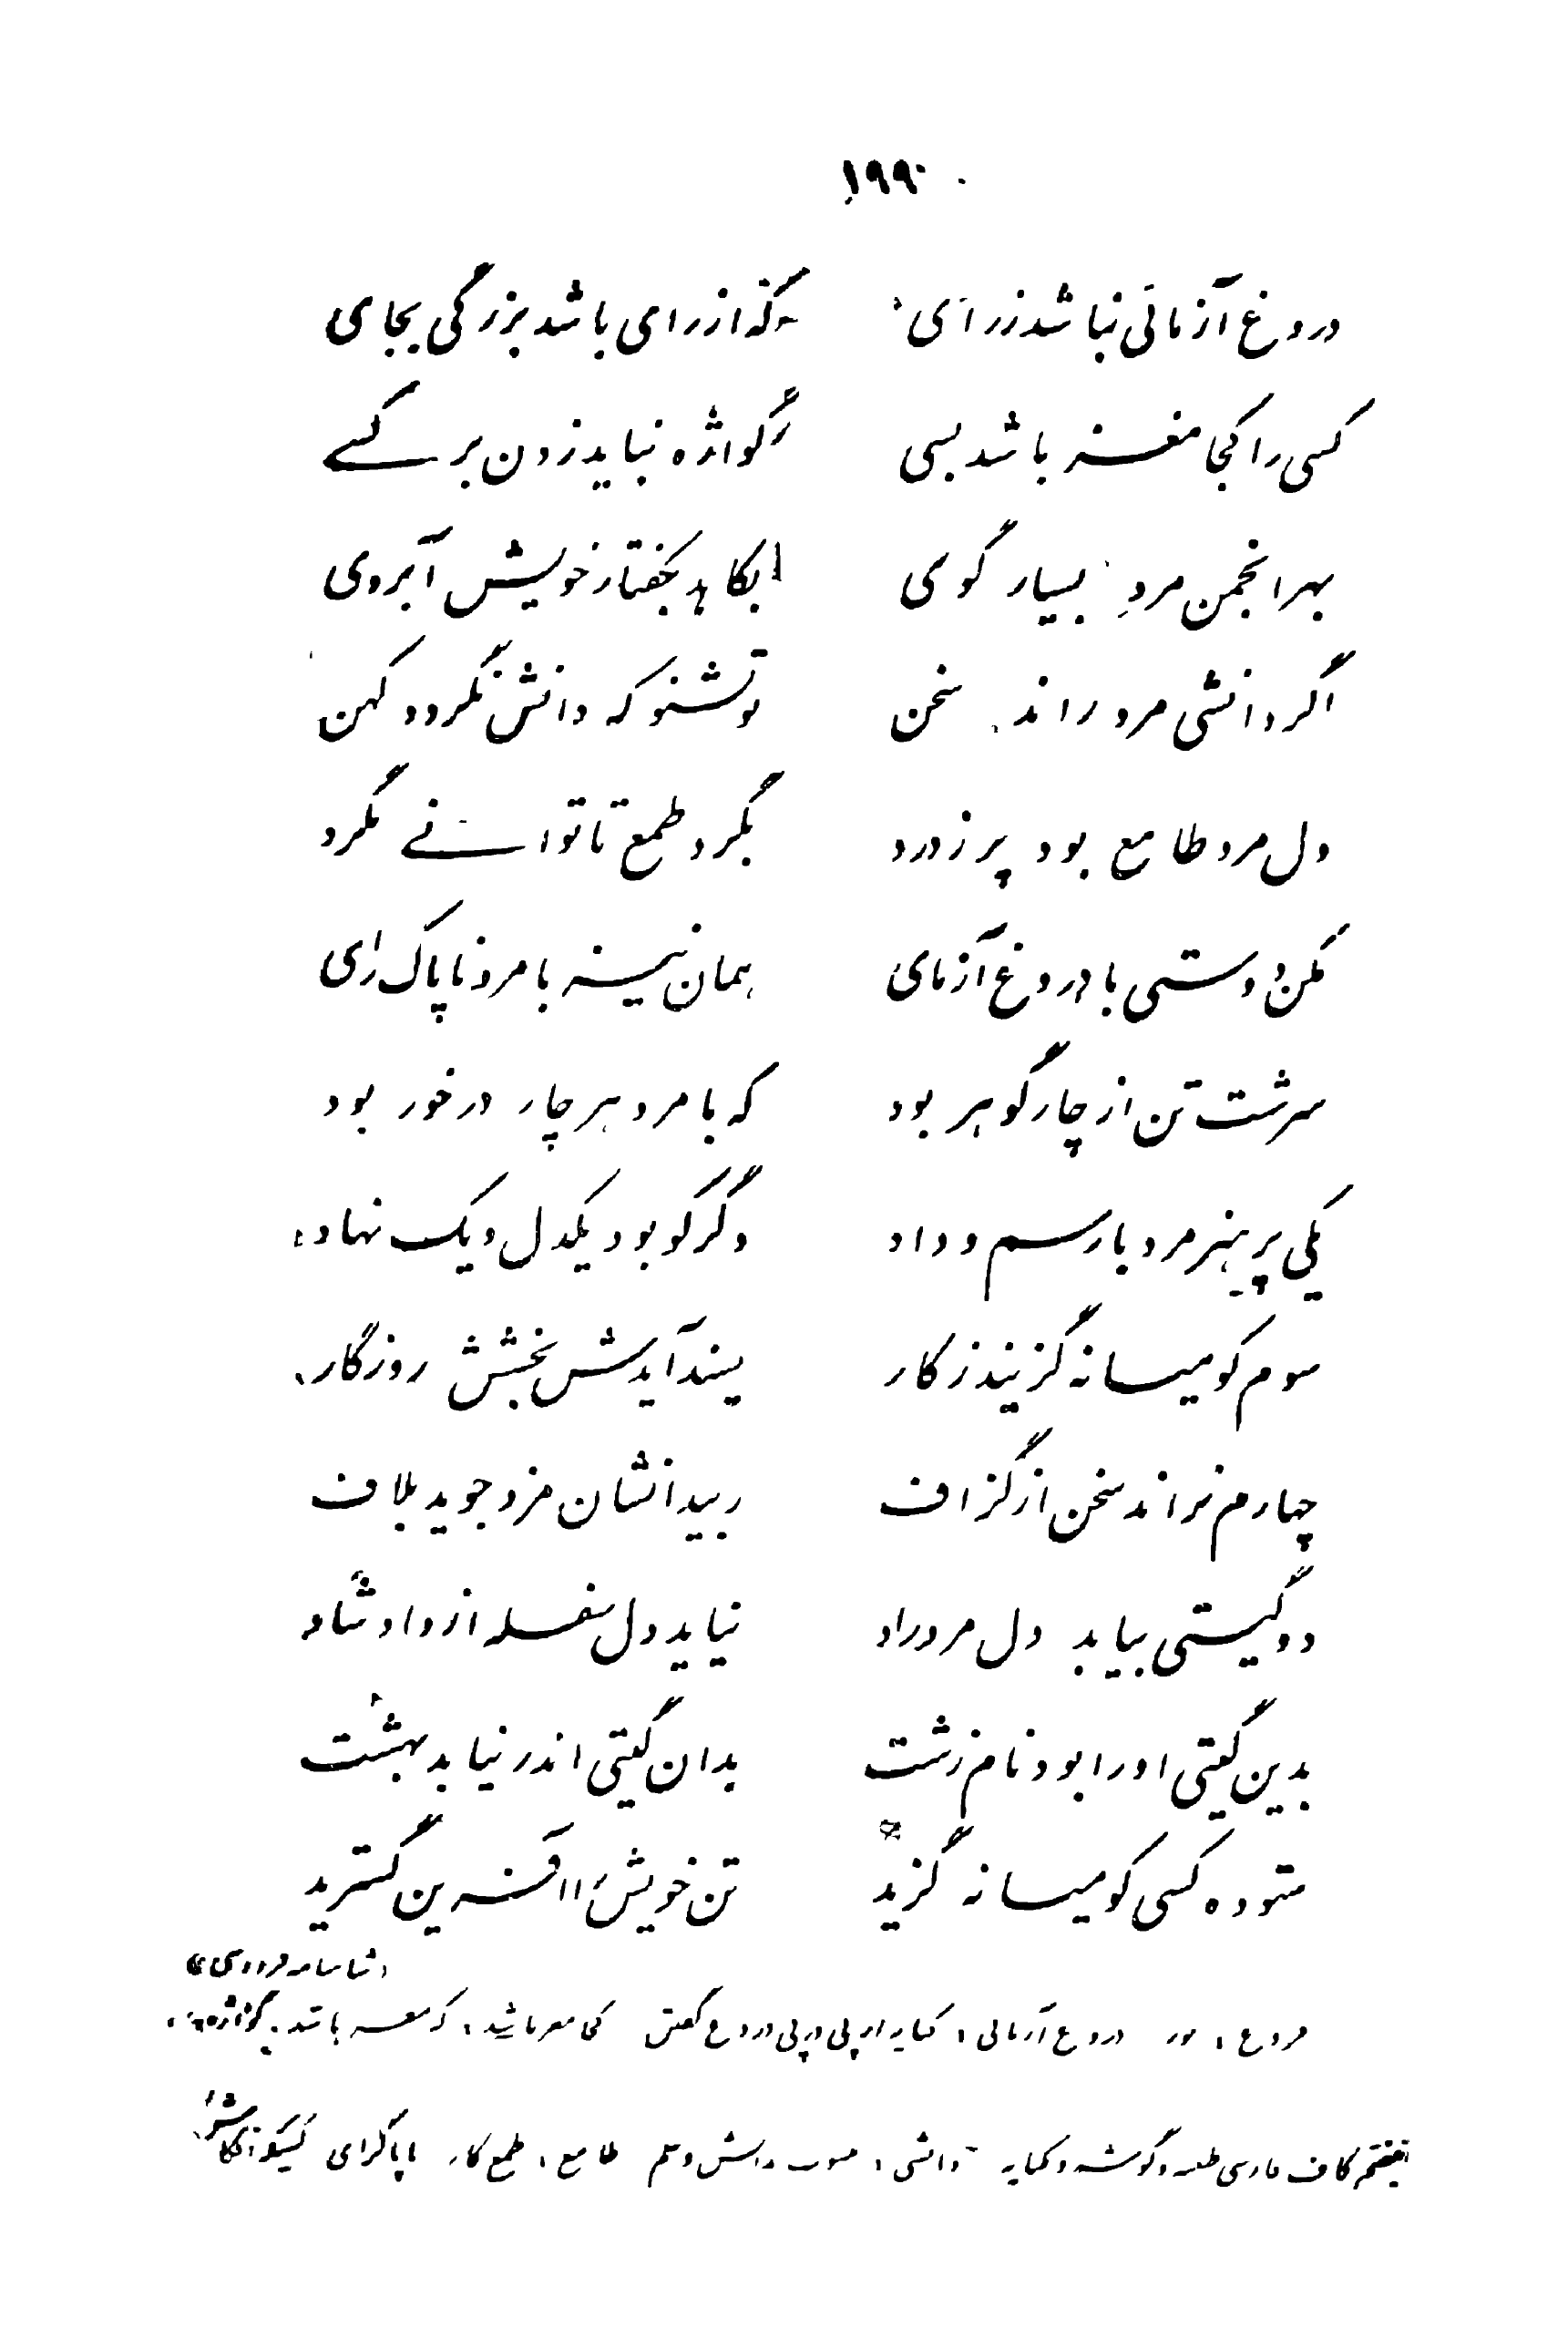 ۱۹۹
دروغ آزمائی نباشد ز رای که از رای باشد بزرگی بجای
کسی را کجا مغز باشد بسی گواژه نباید زدن بر کسے
بهر انجمن مردِ بسیار گوی بکاهد بگفتار خویش آبروی
اگر دانشی مرد راند سخن تو بشنو که دانش نگردد کهن
دل مرد طامع بود پر ز درد بگرد طمع تا توانے مگرد
مکن دوستی با دروغ آزمای همان نیز با مرد ناپاک رای
سرشت تن از چار گوهر بود که با مرد هر چار در خور بود
یکی پر هنر مرد با رسم و داد دگر کو بود یکدل و یک نهاد
سوم کو میانه گزیند ز کار پسند آیدش بخشش روزگار
چهارم نراند سخن از گزاف ز بیدانشان مزد جوید بلاف
دو گیتی بیابد دل مرد راد نیابد دل سفله از داد شاد
بدین گیتی او را بود نام زشت بدان گیتی اندر نیابد بهشت
ستوده کسی کو میانه گزید تن خویش را آفرین گسترید
شاهنامه فردوسی
دروغ آزمائی، کنایه از پی در پی دروغ گفتن باشد گواژه
کاف فارسی و گوشه و کنایه دانشی، دانش و علم طامع، طمع کار